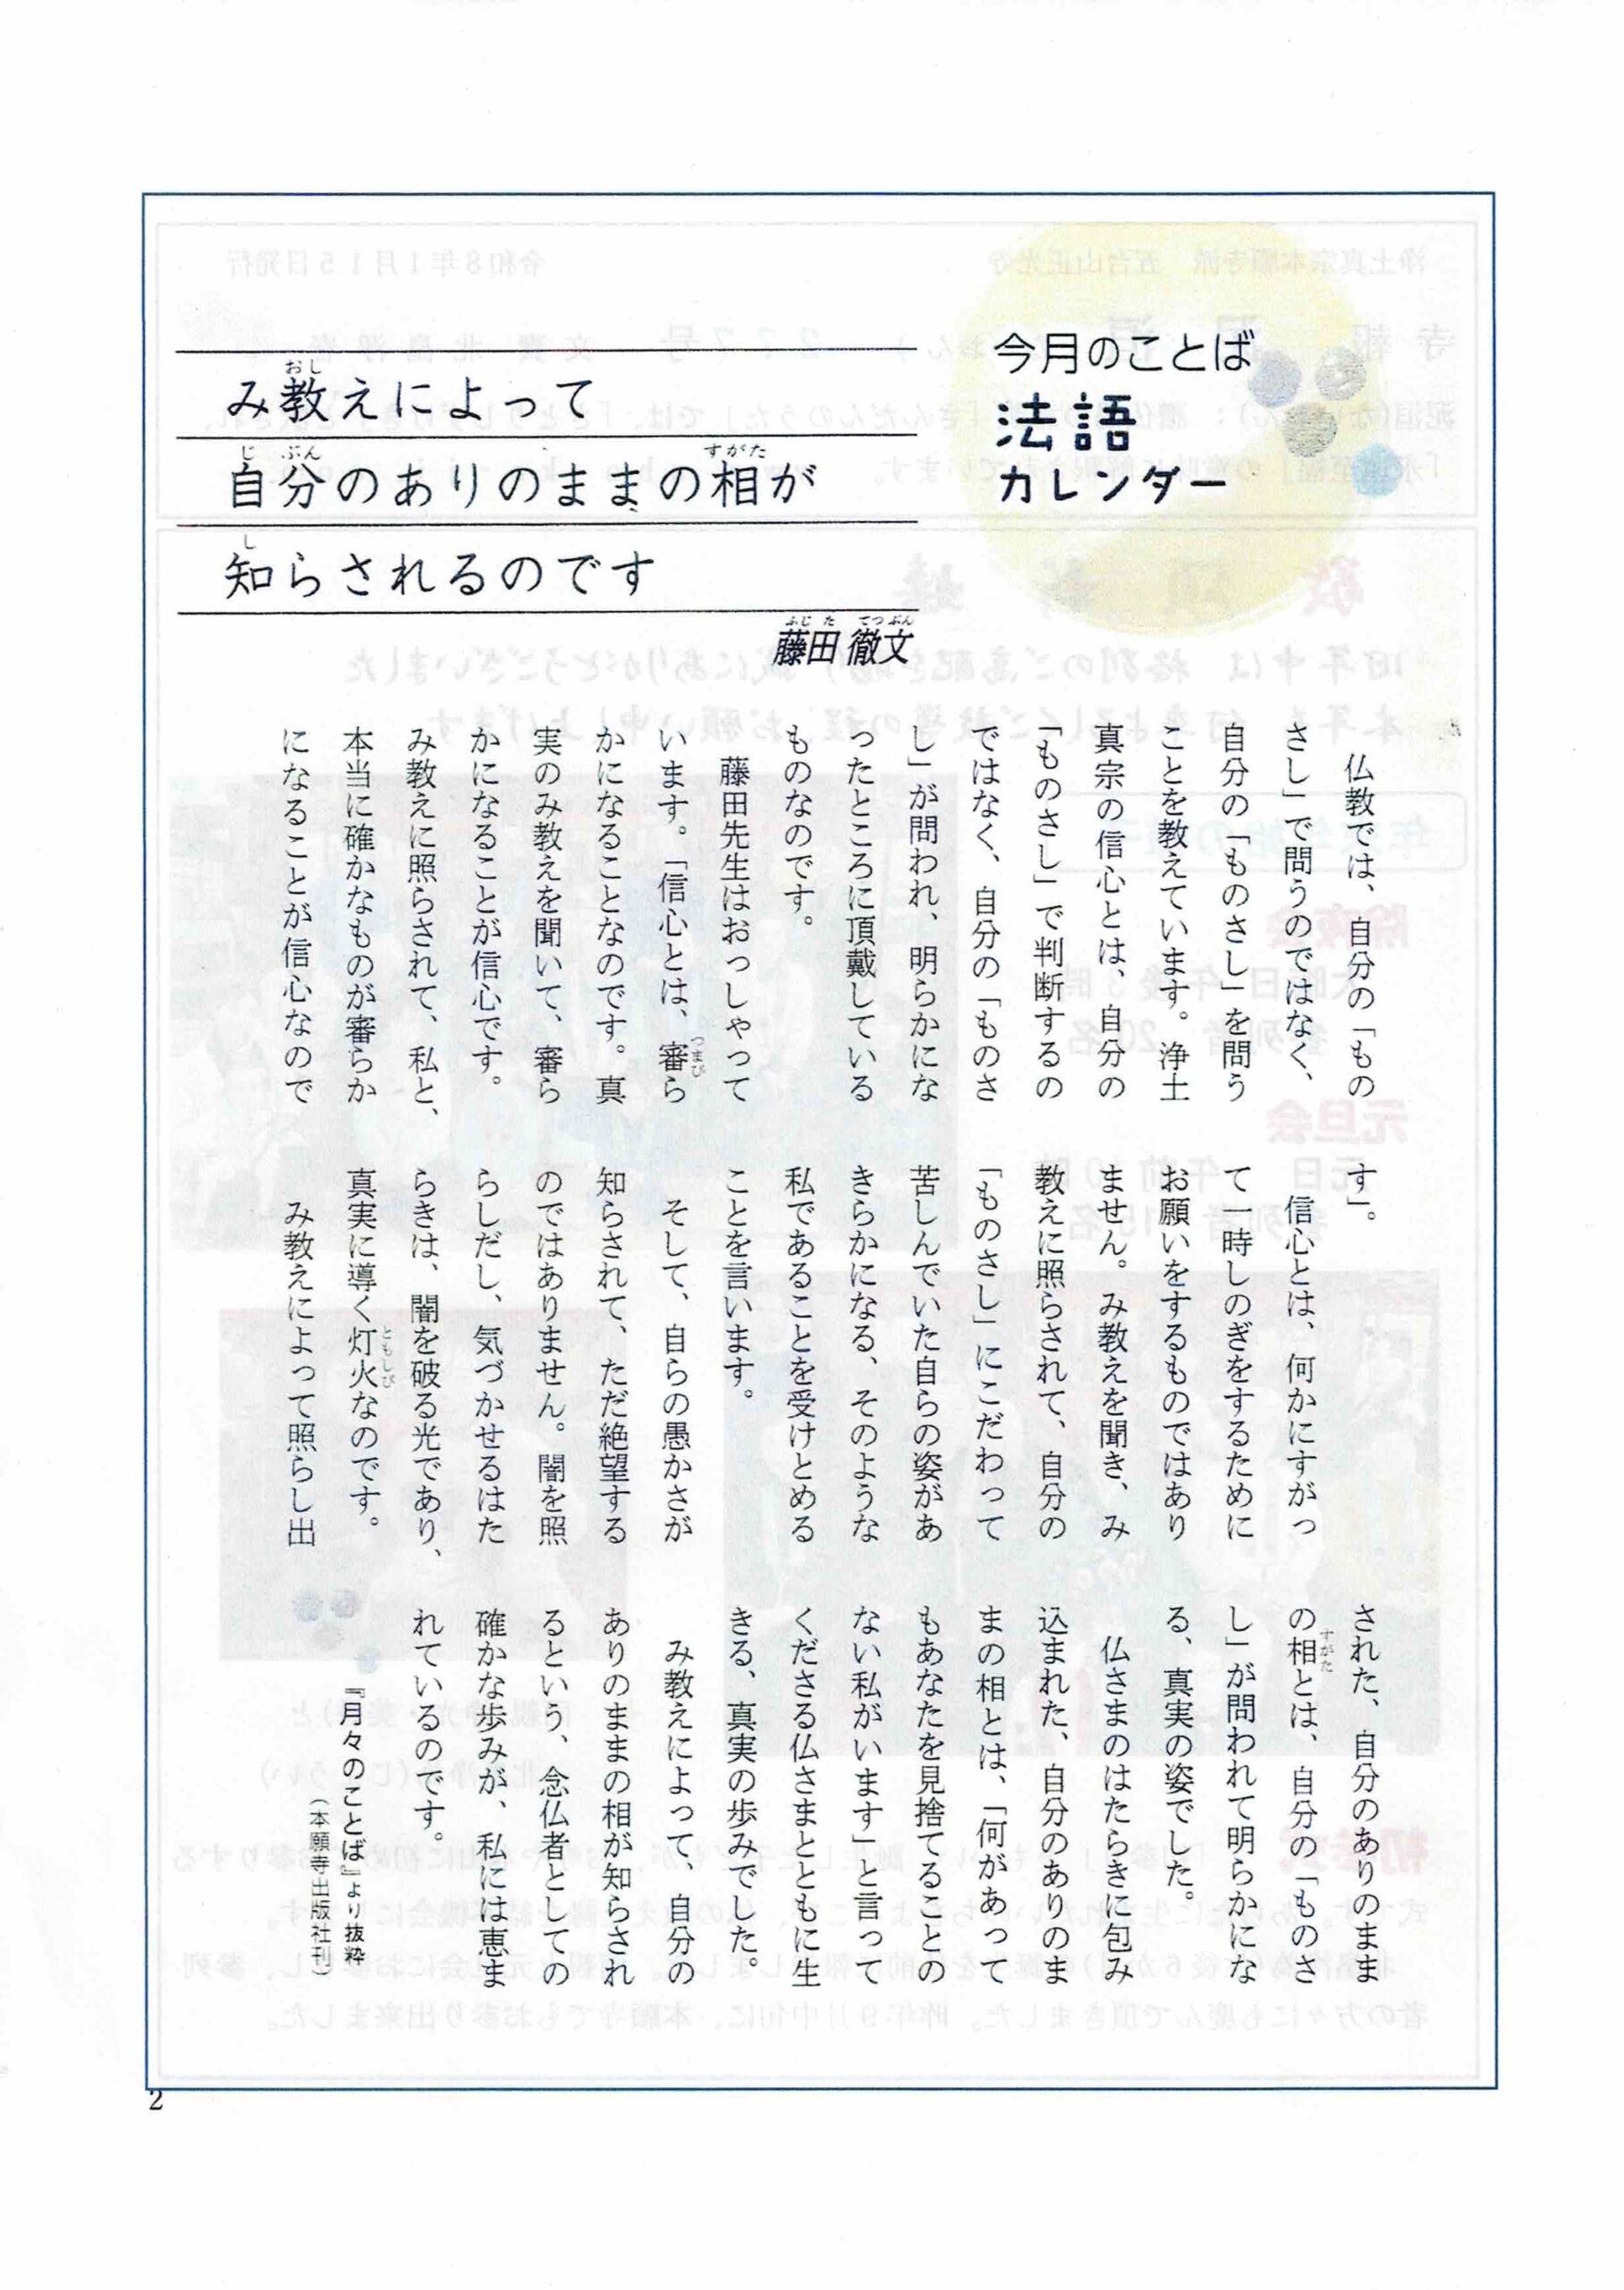 今月のことば
法語
カレンダー
み教えによって
自分のありのままの相が
知らされるのです
藤田 徹文
仏教では、自分の「もの
さし」で問うのではなく、
自分の「ものさし」を問う
ことを教えています。浄土
真宗の信心とは、自分の
「ものさし」で判断するの
ではなく、自分の「ものさ
し」が問われ、明らかにな
ったところに頂戴している
ものなのです。
藤田先生はおっしゃって
います。「信心とは、審ら
かになることなのです。真
実のみ教えを聞いて、審ら
かになることが信心です。
み教えに照らされて、私と、
本当に確かなものが審らか
になることが信心なので
す」。
信心とは、何かにすがっ
て一時しのぎをするために
お願いをするものではあり
ません。み教えを聞き、み
教えに照らされて、自分の
「ものさし」にこだわって
苦しんでいた自らの姿があ
きらかになる、そのような
私であることを受けとめる
ことを言います。
そして、自らの愚かさが
知らされて、ただ絶望する
のではありません。闇を照
らしだし、気づかせるはた
らきは、闇を破る光であり、
真実に導く灯火なのです。
み教えによって照らし出
された、自分のありのまま
の相とは、自分の「ものさ
し」が問われて明らかにな
る、真実の姿でした。
仏さまのはたらきに包み
込まれた、自分のありのま
まの相とは、「何があって
もあなたを見捨てることの
ない私がいます」と言って
くださる仏さまとともに生
きる、真実の歩みでした。
み教えによって、自分の
ありのままの相が知らされ
るという、念仏者としての
確かな歩みが、私には恵ま
れているのです。
『月々のことば』より抜粋
（本願寺出版社刊）
2